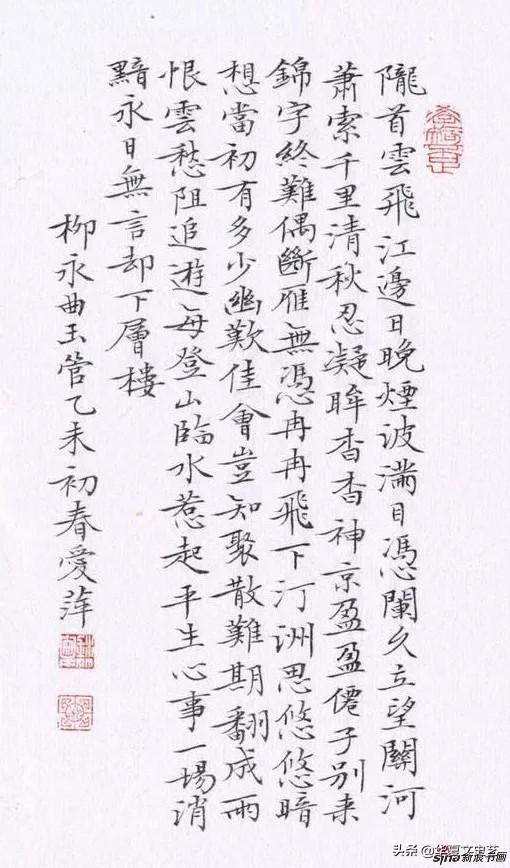 隴首雲飛江邊日晚煙波滿目憑闌久立望關河
蕭索千里清秋忍凝眸杳杳神京盈盈僊子別来
錦字終難偶斷雁無憑冉冉飛下汀洲思悠悠暗
想當初有多少幽歎佳會豈知聚散難期翻成雨
恨雲愁阻追遊每登山臨水惹起平生心事一場消
黯永日無言却下層樓
柳永曲玉管乙未初春愛萍
头条 @华夏文史荟
sina新浪书画